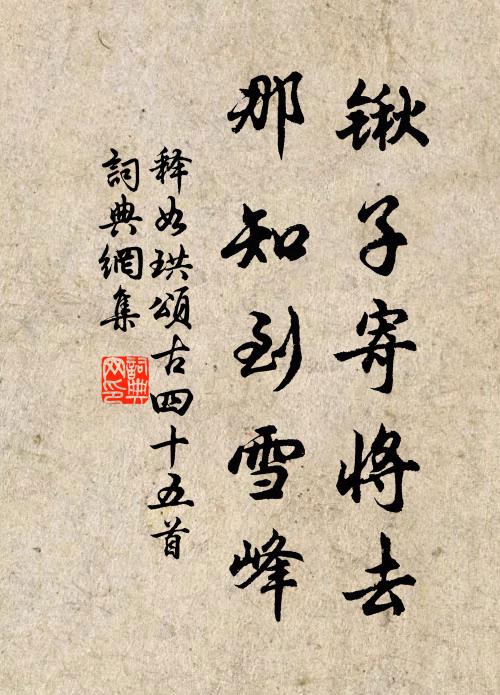 锹子寄将去
那知到雪峰
释如珙頌古四十五首
詞典網集
詞典网印